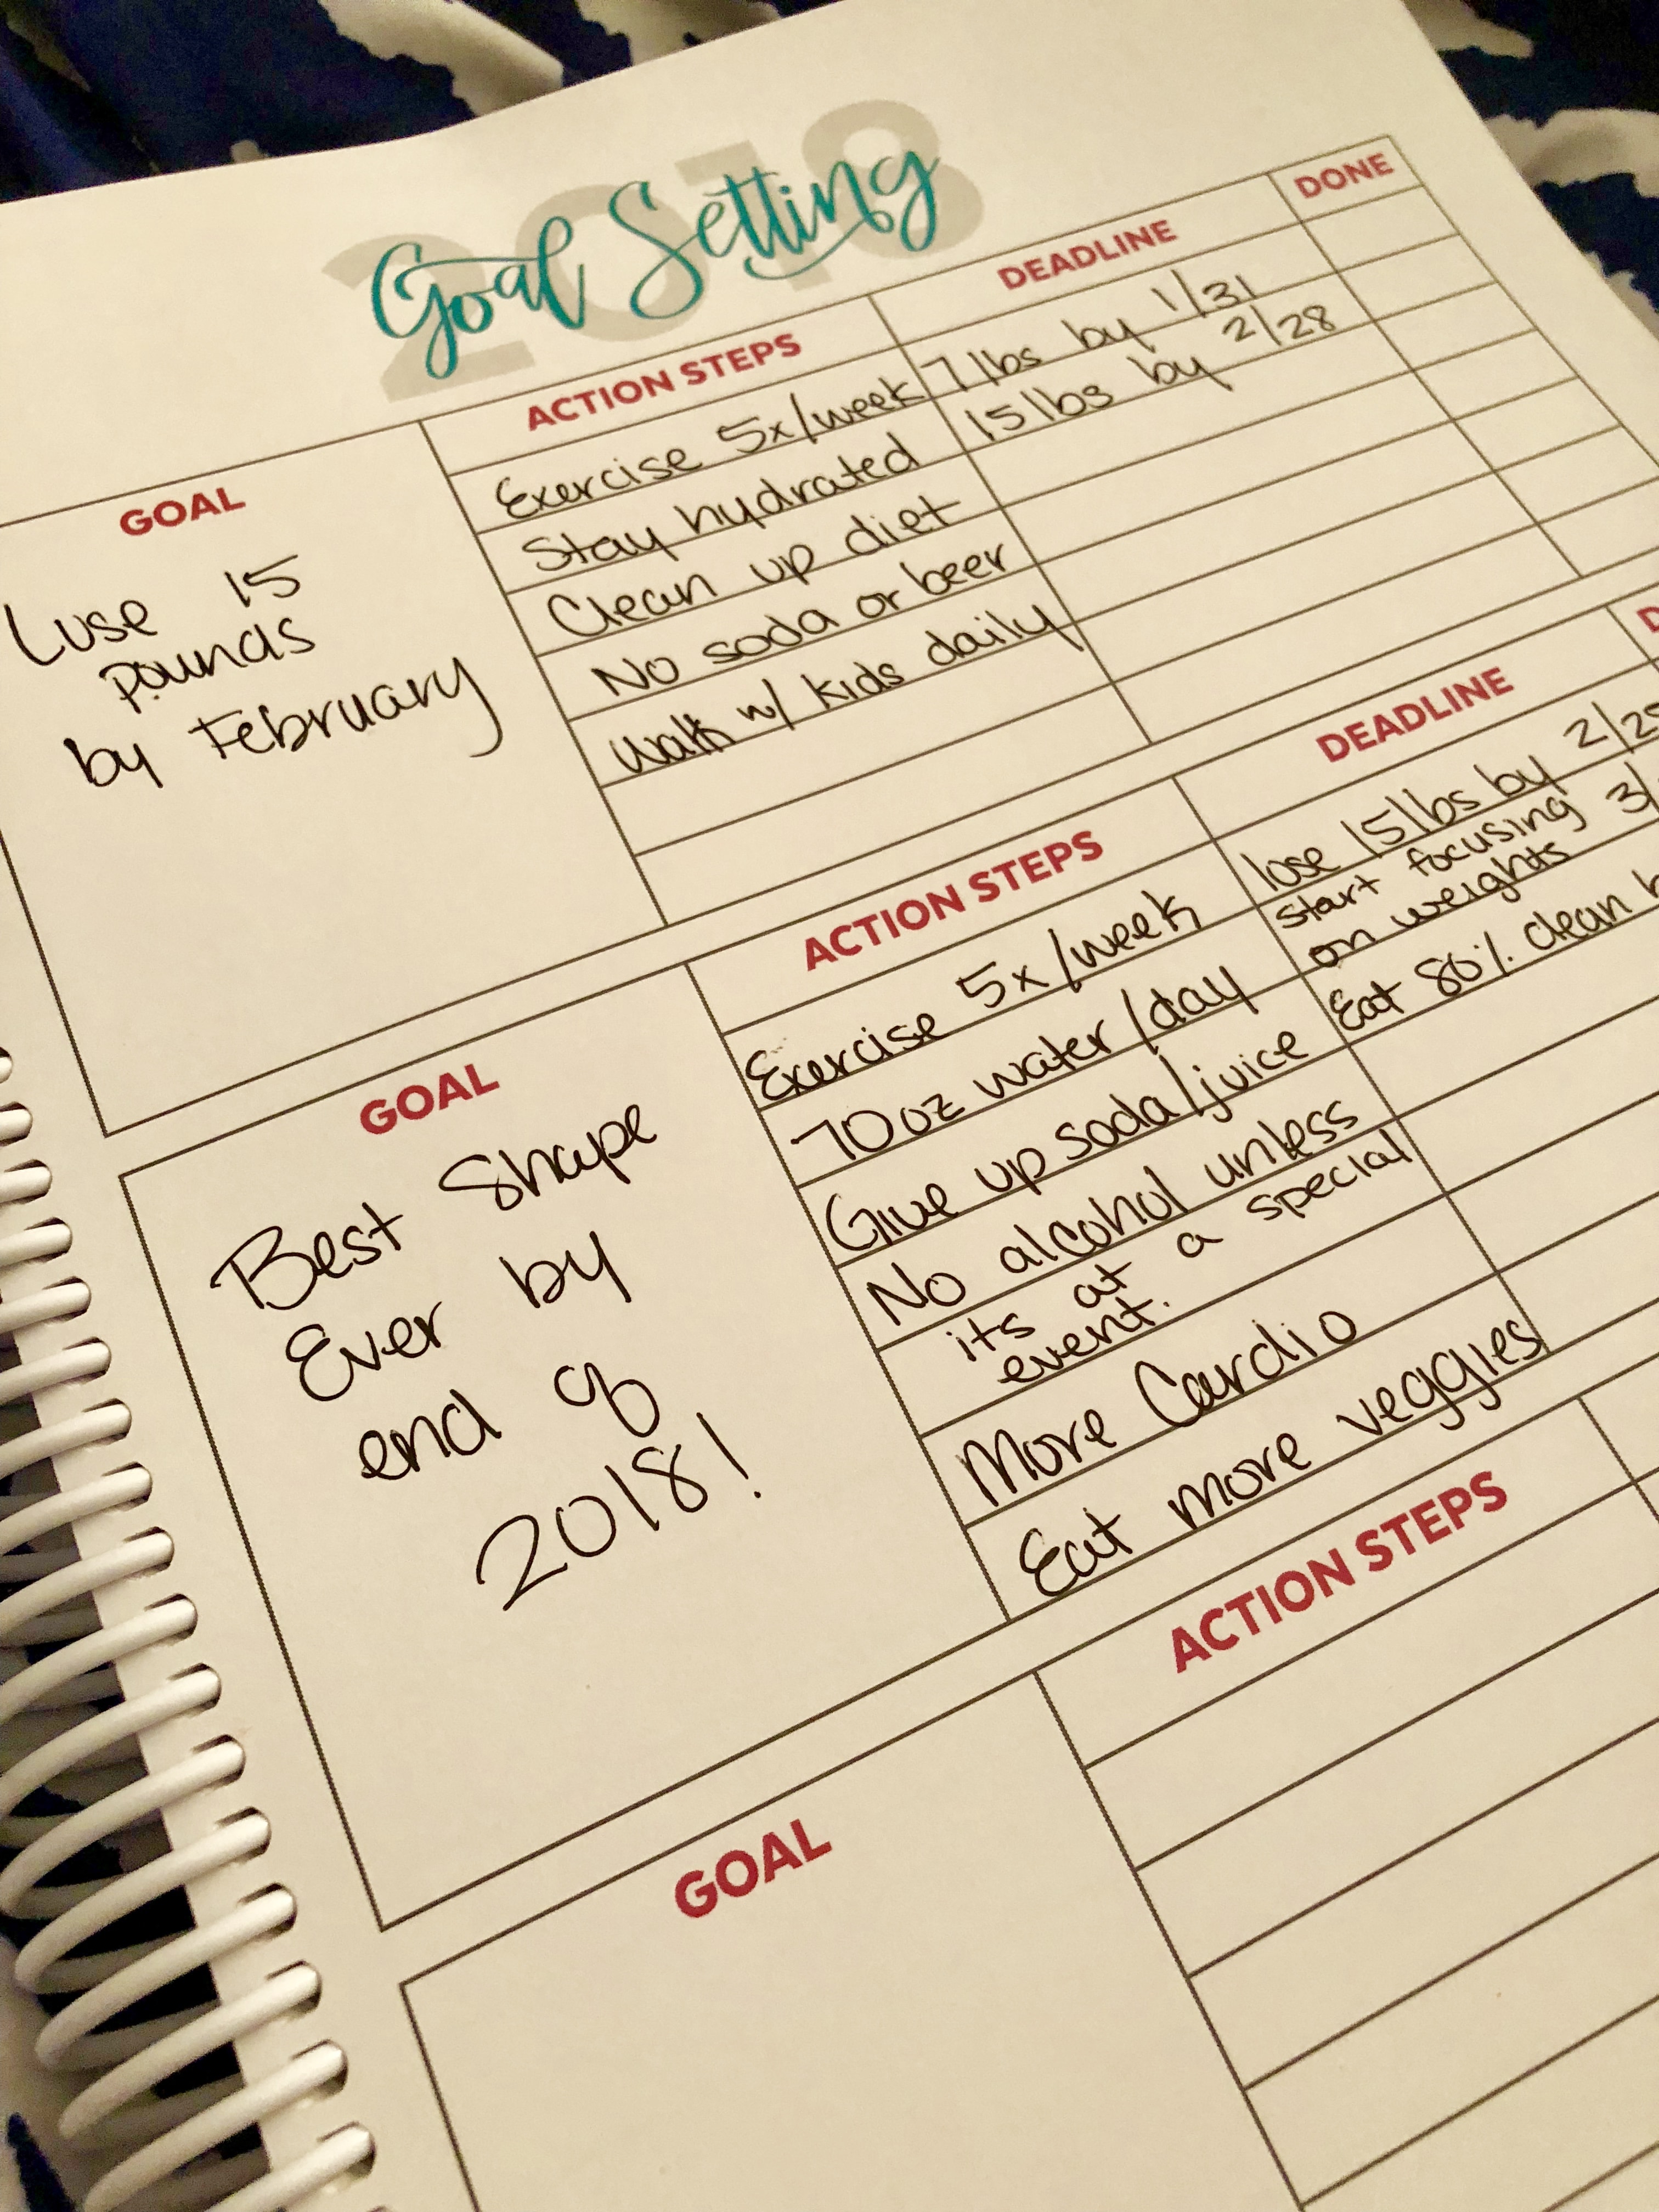 2018
Goal Setting
GOAL
Lose 15
pounds
by February
ACTION STEPS
Exercise 5x/week
Stay hydrated
Clean up diet
No soda or beer
Walk w/ kids daily
DEADLINE
7 lbs by 1/31
15 lbs by 2/28
DONE
GOAL
Best Shape
Ever by
end of
2018!
ACTION STEPS
Exercise 5x/week
70 oz water/day
Give up soda/juice
No alcohol unless
its at a special
event.
More Cardio
Eat more veggies
DEADLINE
lose 15 lbs by
start focusing
on weights
Eat 80% clean
GOAL
ACTION STEPS